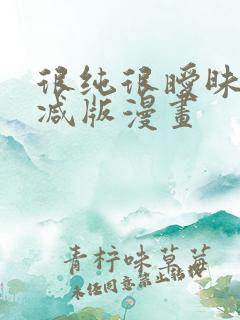 很纯很暧昧
减版漫画
青柠味草莓
未经同意禁止转授